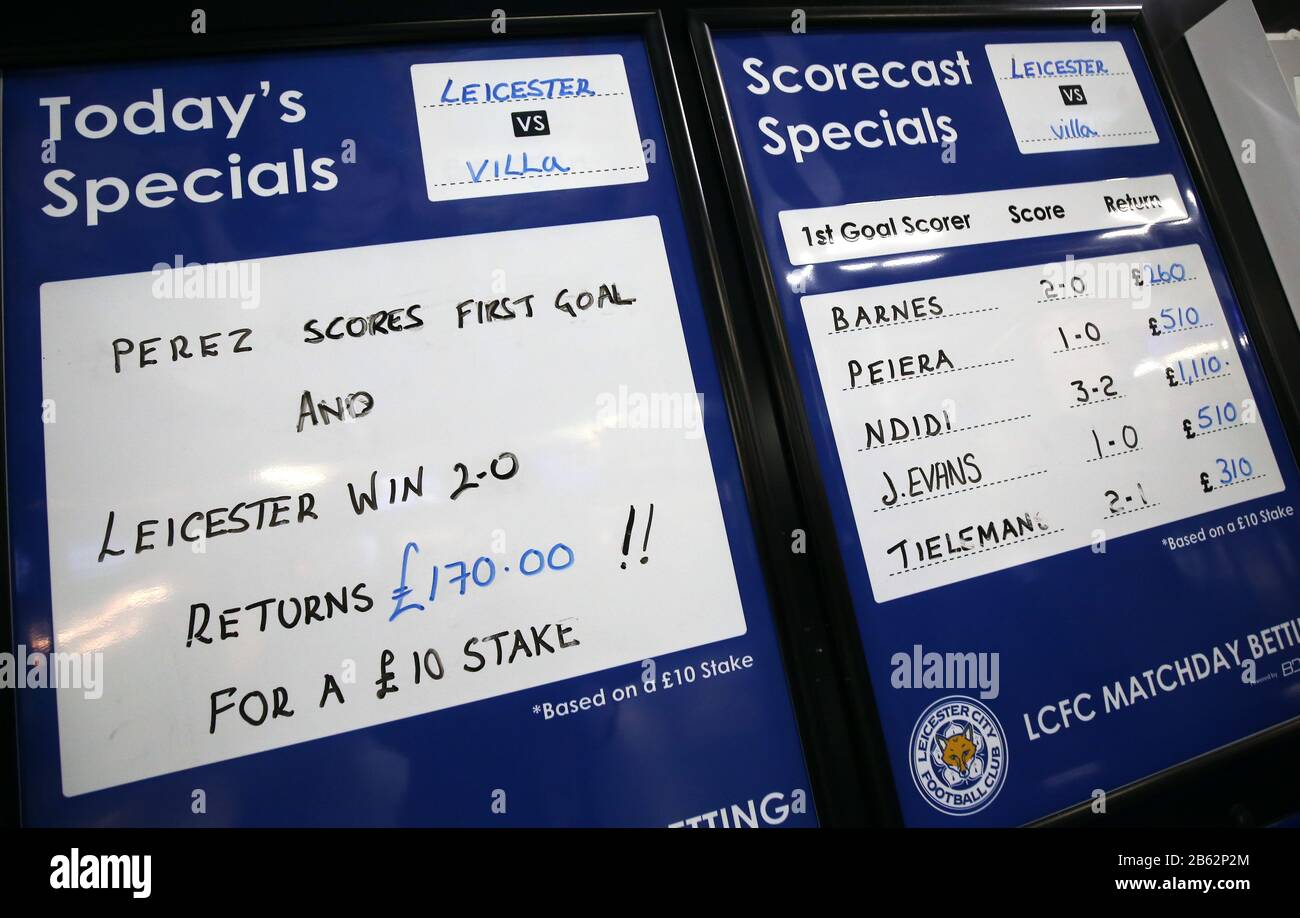 Today's
Specials
LEICESTER
VS
VILLa
PEREZ SCORES FIRST GOAL
AND
LEICESTER WIN 2-0
RETURNS £170.00 !!
FOR A £10 STAKE
*Based on a £10 Stake
ETTING
Scorecast
Specials
LEICESTER
VS
villa
1st Goal Scorer Score Return
BARNES 2-0 £260
PEIERA 1-0 £510
NDIDI 3-2 £1,110.
J.EVANS 1-0 £510
TIELEMANS 2-1 £310
*Based on a £10 Stake
LEICESTER CITY
FOOTBALL CLUB
LCFC MATCHDAY BETTI
Powered by
alamy
Image ID: 2B62P2M
www.alamy.com